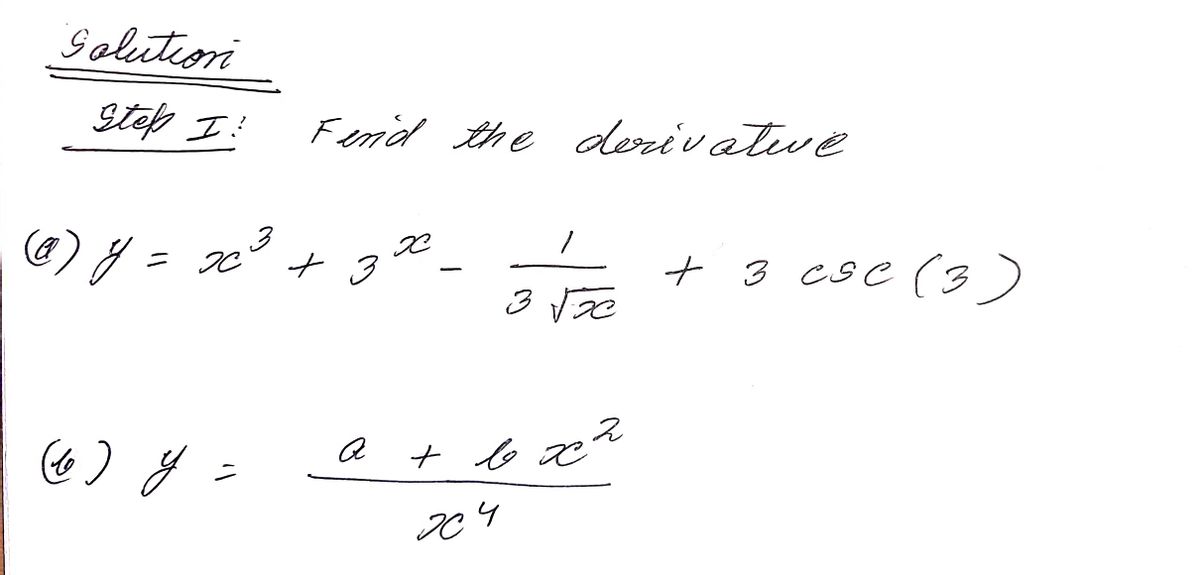 Solution
Step I: Find the derivative
(a) y = x³ + 3ˣ - 1/(3√x) + 3 csc(3)
(b) y = (a + bx²)/x⁴